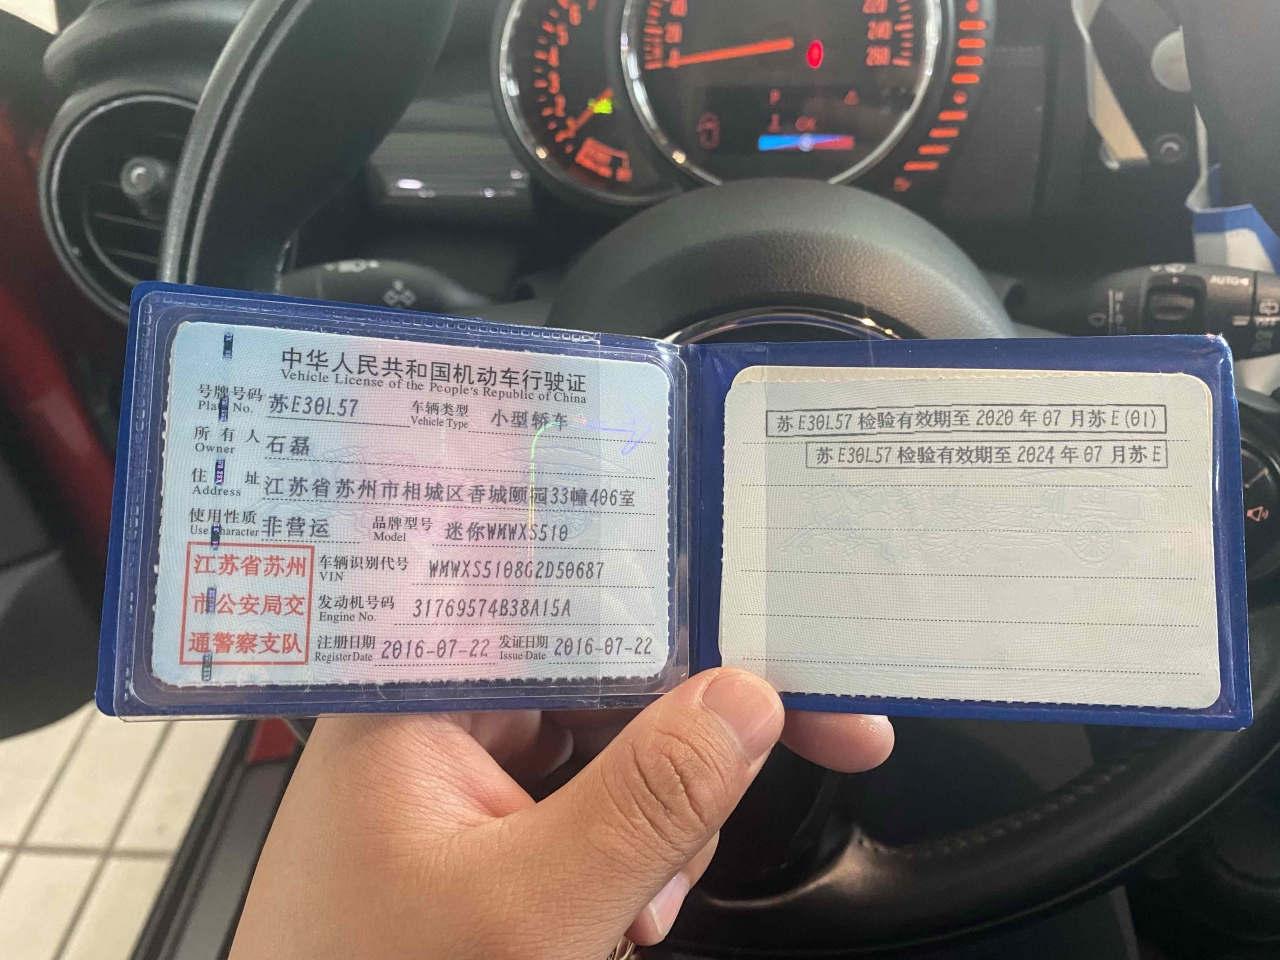 中华人民共和国机动车行驶证
Vehicle License of the People's Republic of China
号牌号码 苏E30L57 车辆类型 小型轿车
Plate No. Vehicle Type
所有人 石磊
Owner
住址 江苏省苏州市相城区香城颐园33幢406室
Address
使用性质 非营运 品牌型号 迷你WMWXS510
Use Character Model
江苏省苏州
市公安局交
通警察支队
车辆识别代号 WMWXS5108G2D50687
VIN
发动机号码 31769574B38A15A
Engine No.
注册日期 2016-07-22 发证日期 2016-07-22
Register Date Issue Date
苏E30L57检验有效期至2020年07月苏E(01)
苏E30L57检验有效期至2024年07月苏E
220
240
260
20
0
P
OK